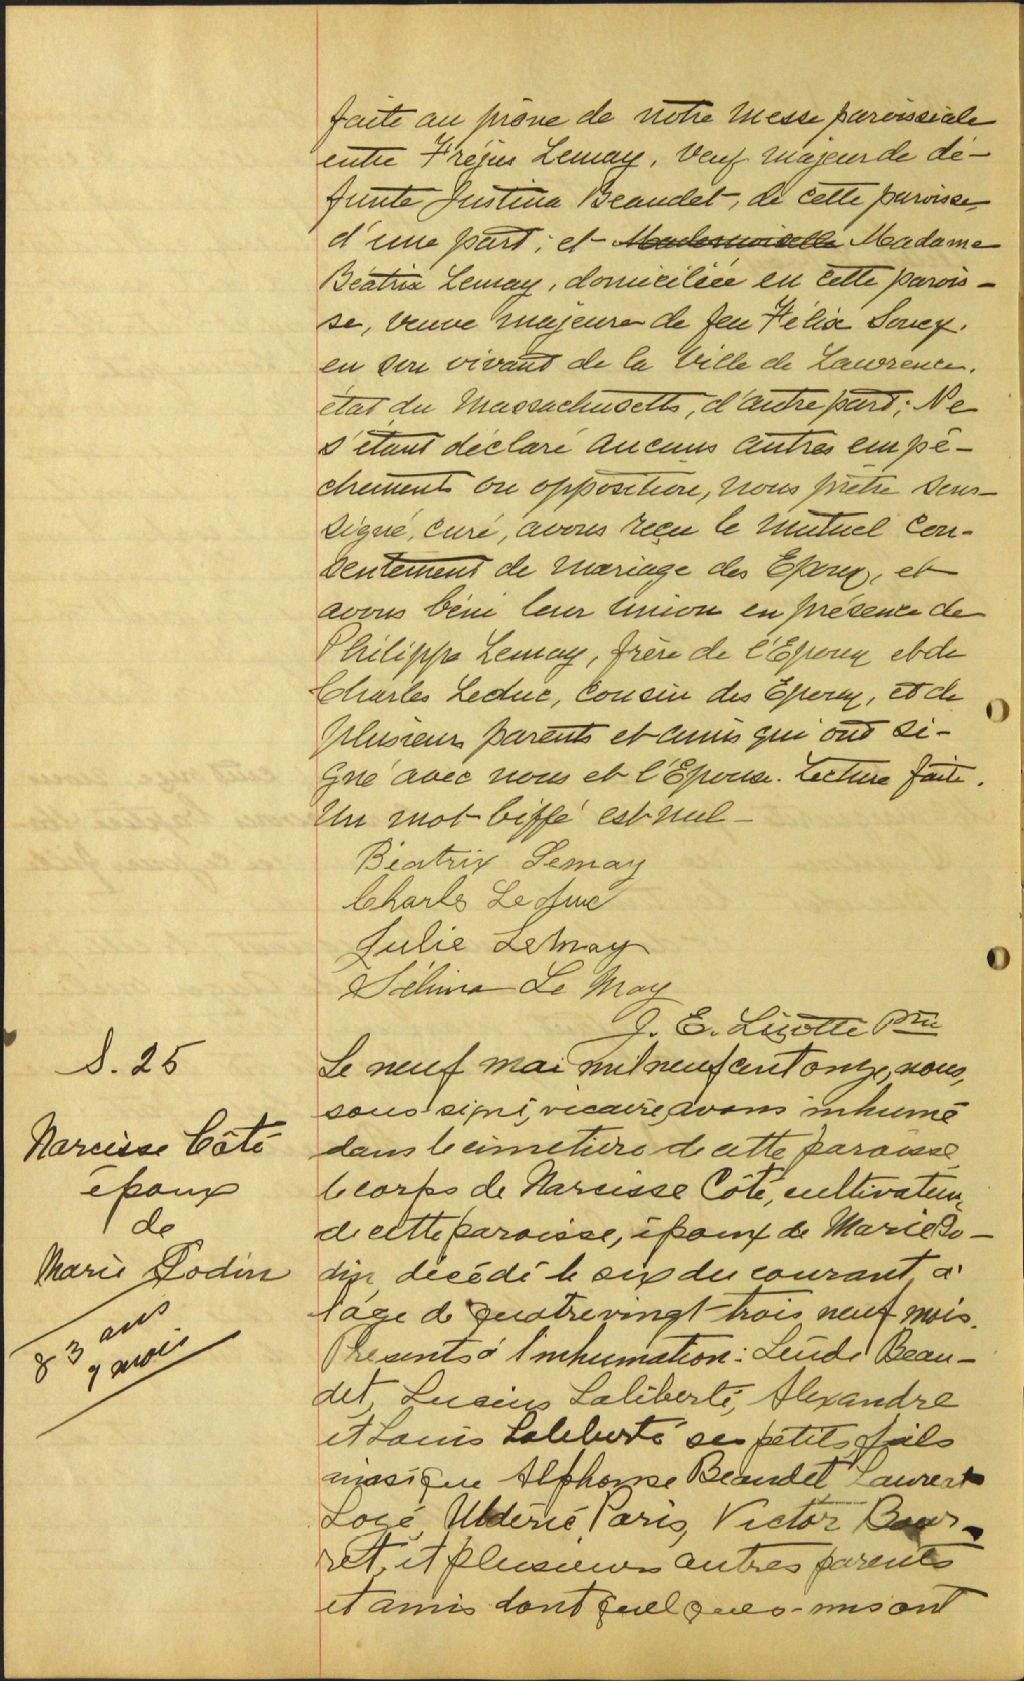 faite au prône de notre messe paroissiale
entre Fréjus Lemay, veuf majeur de dé-
funte Justina Beaudet, de cette paroisse,
d'une part; et Mademoiselle Madame
Béatrix Lemay, domiciliée en cette parois-
se, veuve majeure de feu Félix Soucy,
en son vivant de la ville de Lawrence,
état du Massachusetts, d'autre part; Ne
s'étant déclaré aucuns autres empê-
chements ou opposition, nous prêtre sous-
signé, curé, avons reçu le mutuel con-
sentement de mariage des Epoux, et
avons béni leur union en présence de
Philippe Lemay, frère de l'Epoux et de
Charles Leduc, cousin des Epoux, et de
plusieurs parents et amis qui ont si-
gné avec nous et l'Epouse. Lecture faite.
Un mot biffé est nul -
Béatrix Lemay
Charles Leduc
Julie LeMay
Sélima Le May
J. E. Lizotte Ptre
S. 25
Narcisse Côté
époux
de
Marie Godin
83 ans
9 mois
Le neuf mai mil neuf cent onze, nous,
soussigné, vicaire, avons inhumé
dans le cimetière de cette paroisse
le corps de Narcisse Côté, cultivateur,
de cette paroisse, époux de Marie Go-
din, décédé le six du courant, à
l'âge de quatrevingt-trois neuf mois.
Présents à l'inhumation: Beau-
det, Lucius Laliberté, Alexandre
et Louis Laliberté ses petits fils
ainsi que Alphonse Beaudet, Laurent
Ulderic Paris, Victor Bour-
ret, et plusieurs autres parents
et amis dont quelques-uns ont